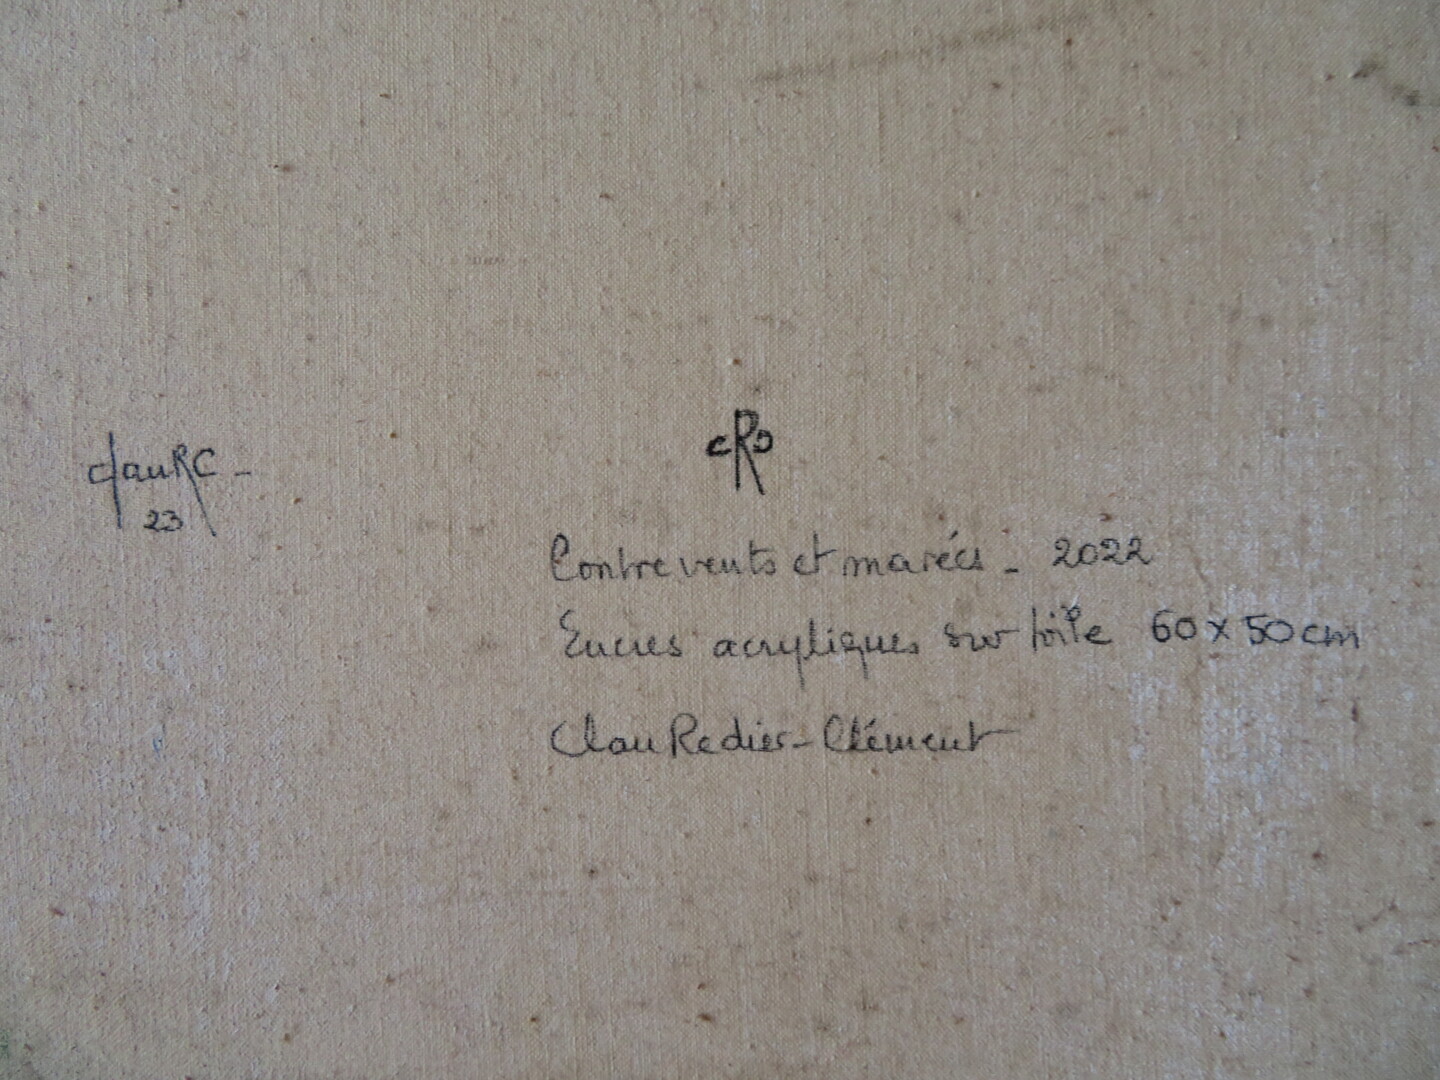 ClauRC -
23
CRC
Contre vents et marées - 2022
Encres acryliques sur toile 60 x 50 cm
Clau Redier-Clément